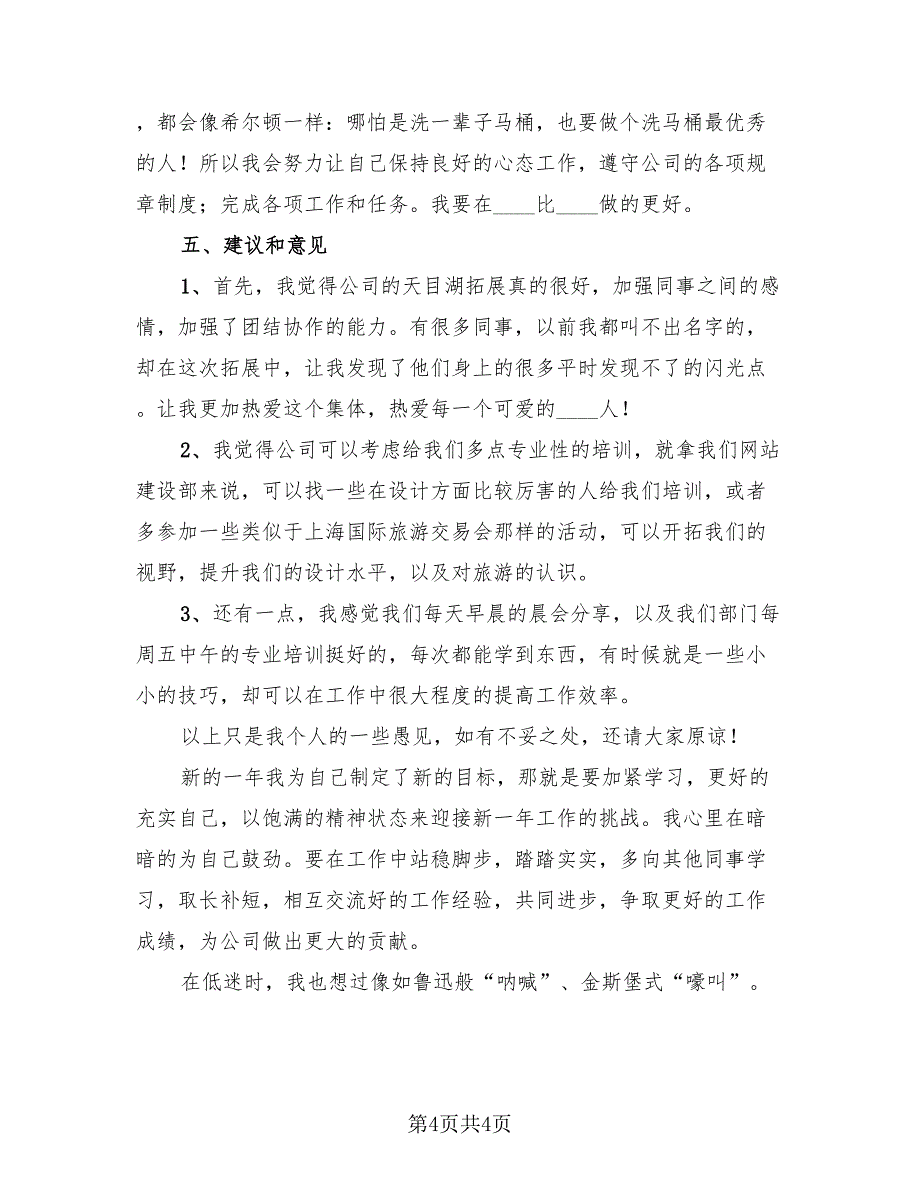 ，都会像希尔顿一样：哪怕是洗一辈子马桶，也要做个洗马桶最优秀
的人！所以我会努力让自己保持良好的心态工作，遵守公司的各项规
章制度；完成各项工作和任务。我要在____比____做的更好。
五、建议和意见
1、首先，我觉得公司的天目湖拓展真的很好，加强同事之间的感
情，加强了团结协作的能力。有很多同事，以前我都叫不出名字的，
却在这次拓展中，让我发现了他们身上的很多平时发现不了的闪光点
。让我更加热爱这个集体，热爱每一个可爱的____人！
2、我觉得公司可以考虑给我们多点专业性的培训，就拿我们网站
建设部来说，可以找一些在设计方面比较厉害的人给我们培训，或者
多参加一些类似于上海国际旅游交易会那样的活动，可以开拓我们的
视野，提升我们的设计水平，以及对旅游的认识。
3、还有一点，我感觉我们每天早晨的晨会分享，以及我们部门每
周五中午的专业培训挺好的，每次都能学到东西，有时候就是一些小
小的技巧，却可以在工作中很大程度的提高工作效率。
以上只是我个人的一些愚见，如有不妥之处，还请大家原谅！
新的一年我为自己制定了新的目标，那就是要加紧学习，更好的
充实自己，以饱满的精神状态来迎接新一年工作的挑战。我心里在暗
暗的为自己鼓劲。要在工作中站稳脚步，踏踏实实，多向其他同事学
习，取长补短，相互交流好的工作经验，共同进步，争取更好的工作
成绩，为公司做出更大的贡献。
在低迷时，我也想过像如鲁迅般“呐喊”、金斯堡式“嚎叫”。
第4页共4页